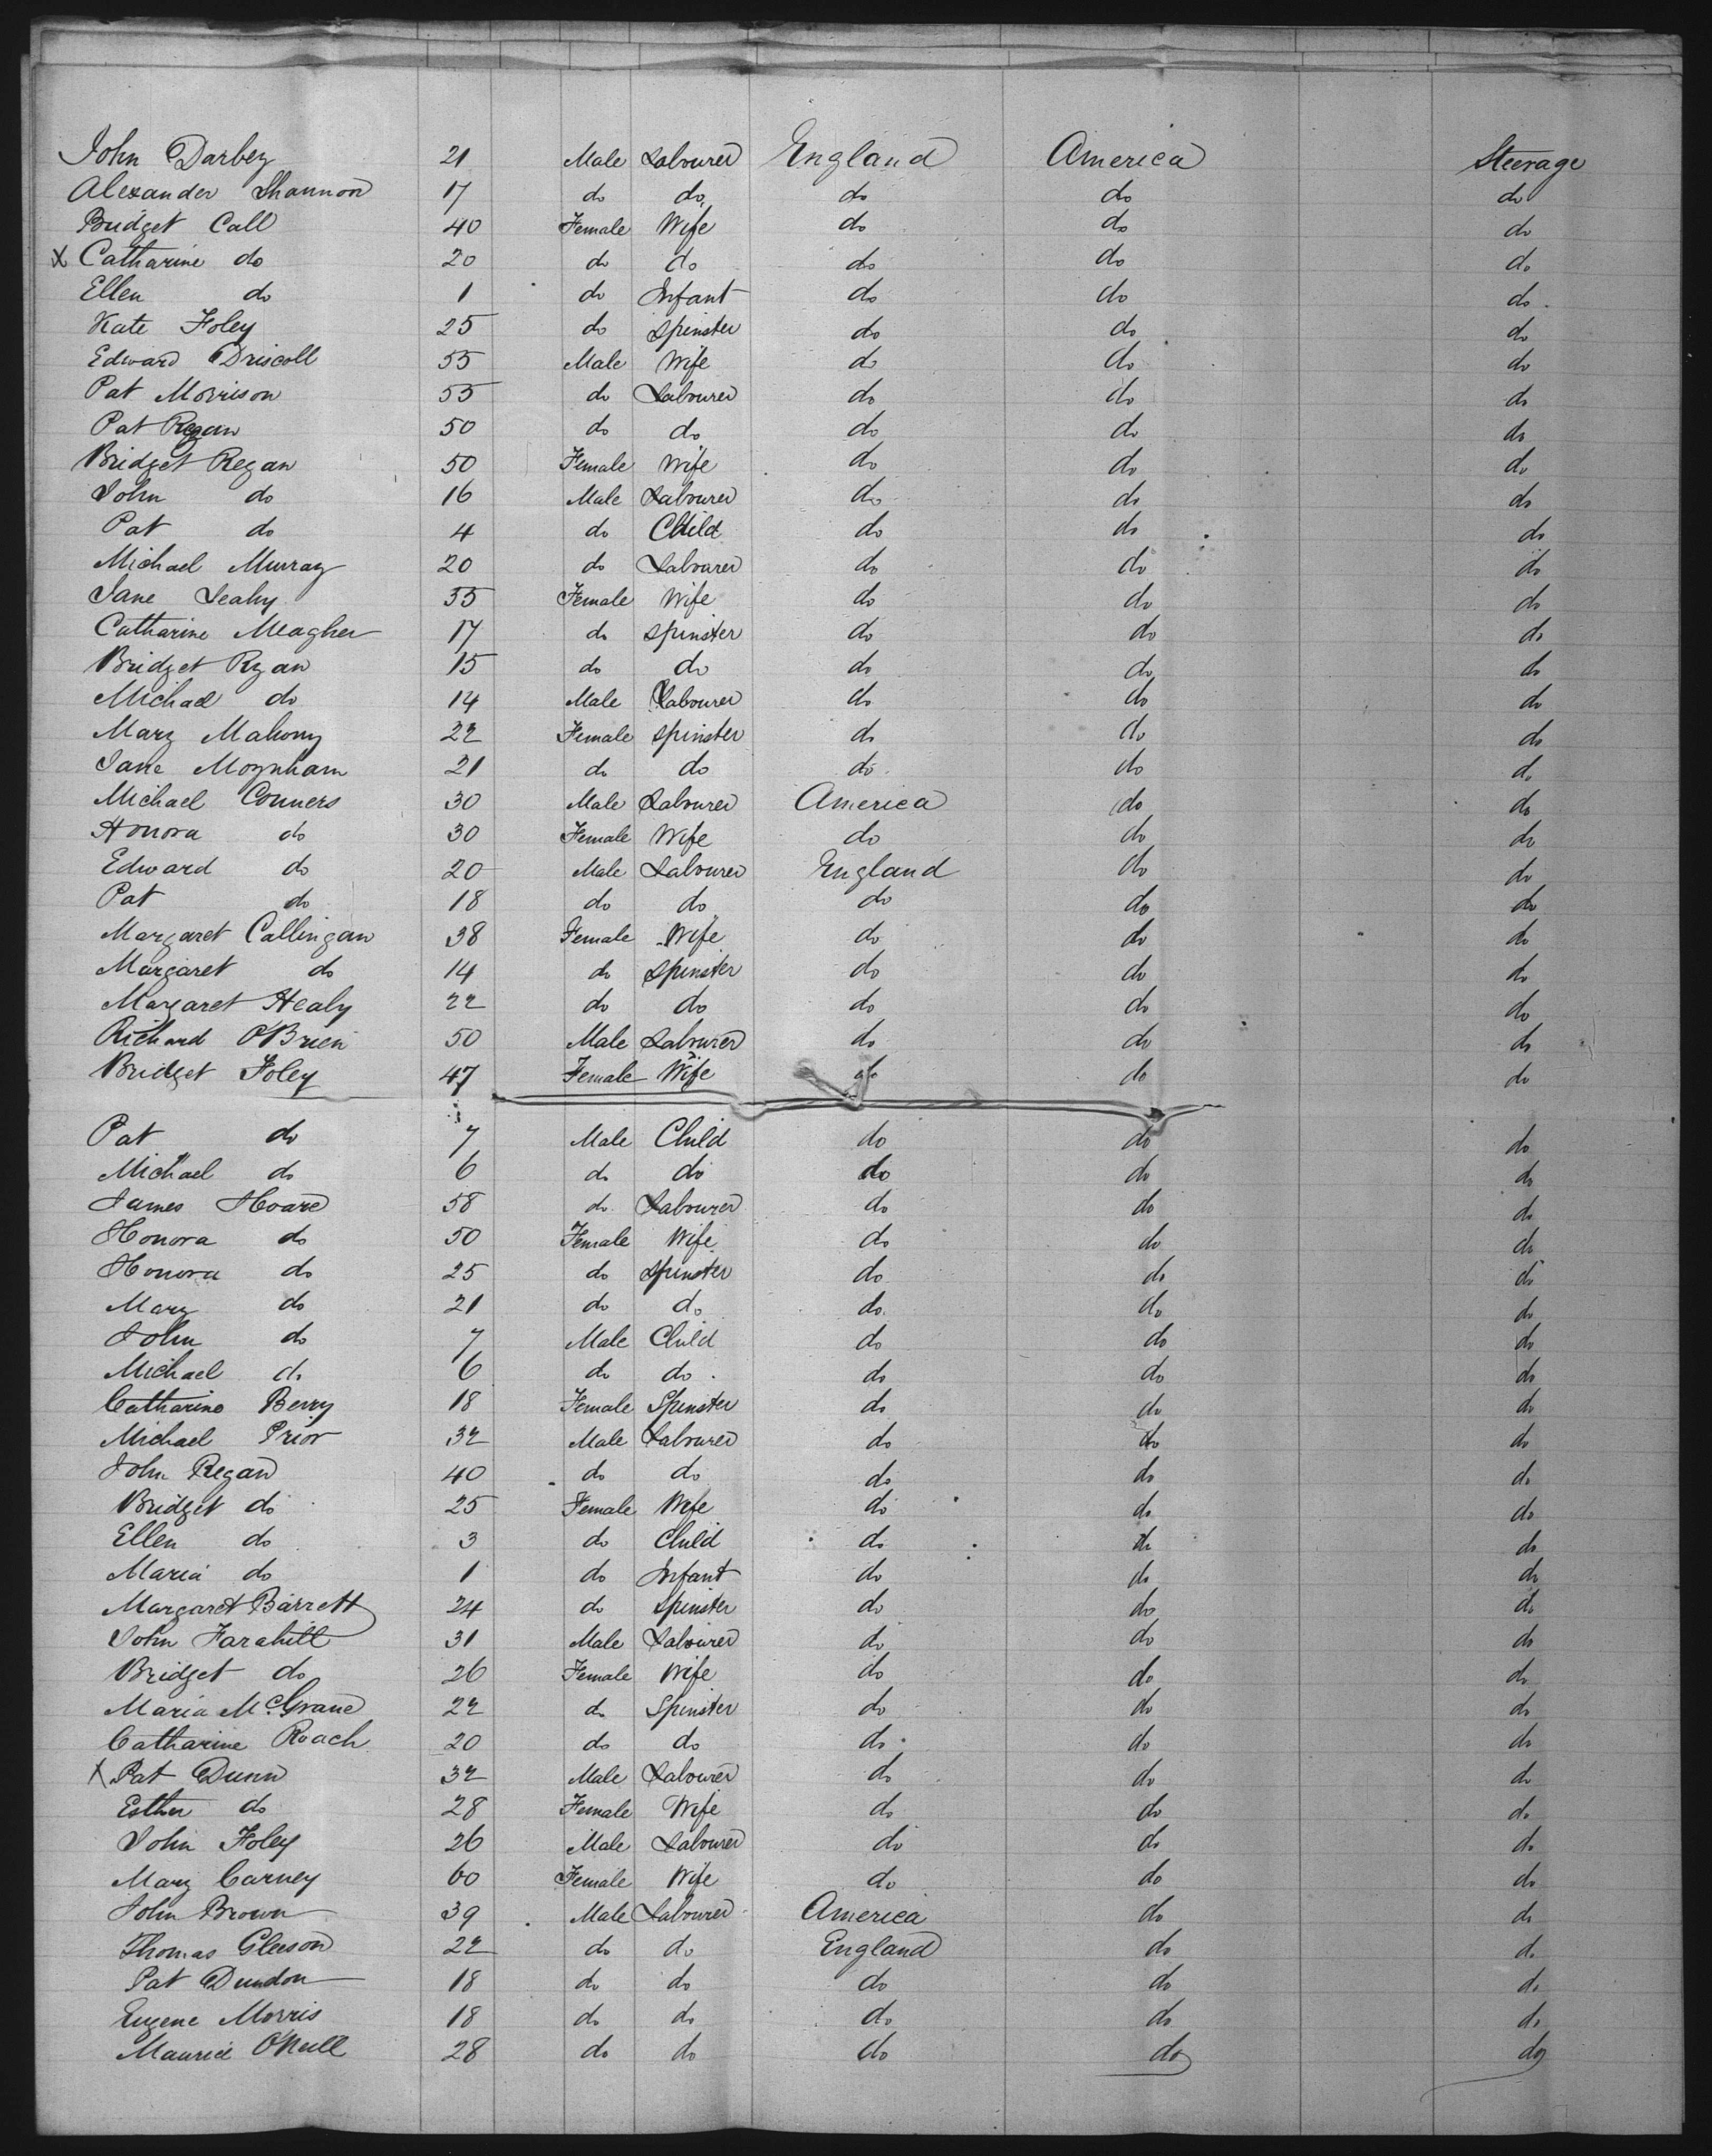 John Darbey 21 Male Labourer England America Steerage
Alexander Shannon 17 do do do do do
Bridget Call 40 Female Wife do do do
X Catharine do 20 do do do do do
Ellen do 1 do Infant do do do
Kate Foley 25 do Spinster do do do
Edward Driscoll 55 Male Wife do do do
Pat Morrison 55 do Labourer do do do
Pat Regan 50 do do do do do
Bridget Regan 50 Female Wife do do do
John do 16 Male Labourer do do do
Pat do 4 do Child do do do
Michael Murray 20 do Labourer do do do
Jane Leahy 35 Female Wife do do do
Catharine Meagher 17 do Spinster do do do
Bridget Ryan 15 do do do do do
Michael do 14 Male Labourer do do do
Mary Mahony 22 Female Spinster do do do
Jane Moynham 21 do do do do do
Michael Conners 30 Male Labourer America do do
Honora do 30 Female Wife do do do
Edward do 20 Male Labourer England do do
Pat do 18 do do do do do
Margaret Callingan 38 Female Wife do do do
Margaret do 14 do Spinster do do do
Margaret Healy 22 do do do do do
Richard O'Brien 50 Male Labourer do do do
Bridget Foley 47 Female Wife do do do
Pat do 7 Male Child do do do
Michael do 6 do do do do do
James Hoare 58 do Labourer do do do
Honora do 50 Female Wife do do do
Honora do 25 do Spinster do do do
Mary do 21 do do do do do
John do 7 Male Child do do do
Michael do 6 do do do do do
Catharine Berry 18 Female Spinster do do do
Michael Prior 32 Male Labourer do do do
John Regan 40 do do do do do
Bridget do 25 Female Wife do do do
Ellen do 3 do Child do do do
Maria do 1 do Infant do do do
Margaret Barrett 24 do Spinster do do do
John Farahill 31 Male Labourer do do do
Bridget do 26 Female Wife do do do
Maria McGrane 22 do Spinster do do do
Catharine Roach 20 do do do do do
X Pat Dunn 32 Male Labourer do do do
Esther do 28 Female Wife do do do
John Foley 26 Male Labourer do do do
Mary Carney 60 Female Wife do do do
John Brown 39 Male Labourer America do do
Thomas Gleeson 22 do do England do do
Pat Dundon 18 do do do do do
Eugene Morris 18 do do do do do
Maurice O'Neill 28 do do do do do